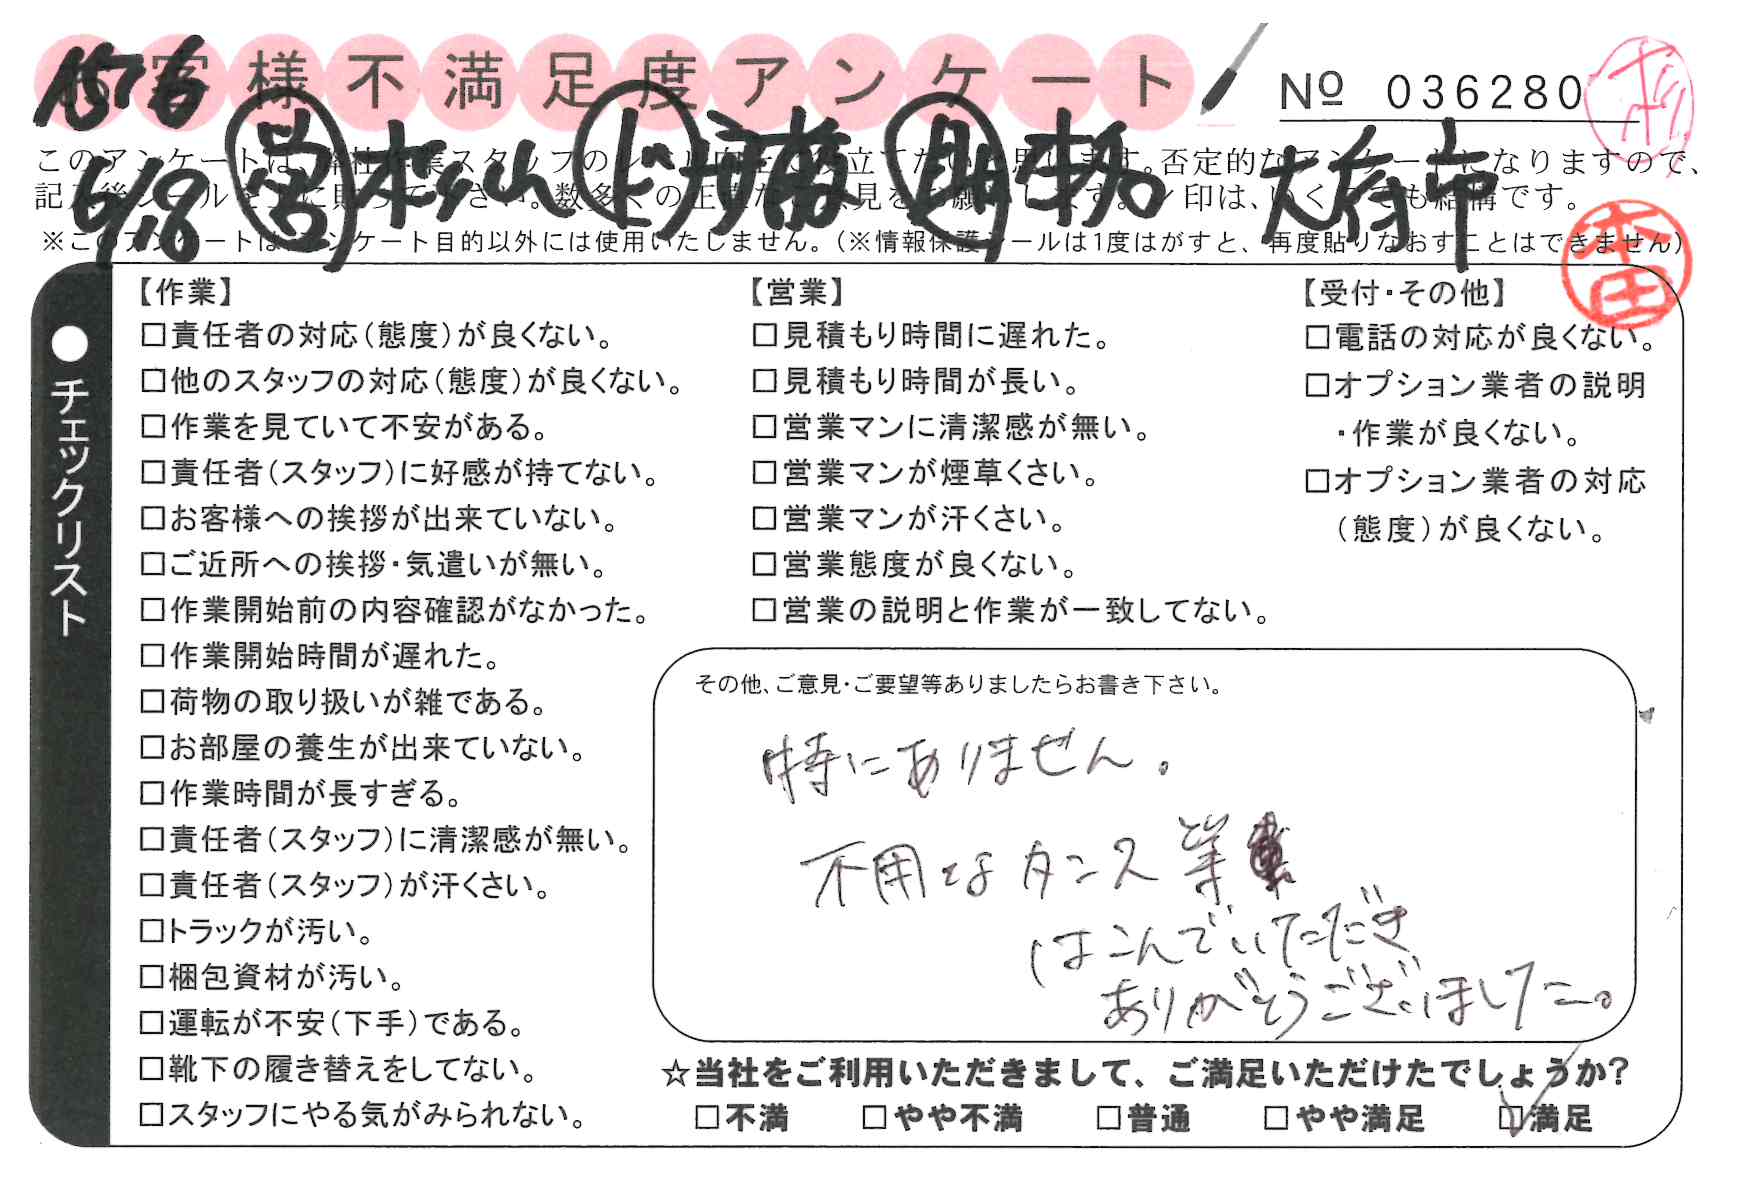 お客様不満足度アンケート
№ 036280
1576
6/18 営 松山 ド 斎藤 助 大府市
このアンケートは、弊社作業スタッフのレベル向上に役立てたいと思います。否定的なアンケートになりますので、
記入後シールを上に貼って下さい。数多くの正直なご意見をお願いします。レ印は、いくつでも結構です。
※このアンケートはアンケート目的以外には使用いたしません。(※情報保護シールは1度はがすと、再度貼りなおすことはできません)
本田
●チェックリスト
【作業】
□責任者の対応(態度)が良くない。
□他のスタッフの対応(態度)が良くない。
□作業を見ていて不安がある。
□責任者(スタッフ)に好感が持てない。
□お客様への挨拶が出来ていない。
□ご近所への挨拶・気遣いが無い。
□作業開始前の内容確認がなかった。
□作業開始時間が遅れた。
□荷物の取り扱いが雑である。
□お部屋の養生が出来ていない。
□作業時間が長すぎる。
□責任者(スタッフ)に清潔感が無い。
□責任者(スタッフ)が汗くさい。
□トラックが汚い。
□梱包資材が汚い。
□運転が不安(下手)である。
□靴下の履き替えをしてない。
□スタッフにやる気がみられない。
【営業】
□見積もり時間に遅れた。
□見積もり時間が長い。
□営業マンに清潔感が無い。
□営業マンが煙草くさい。
□営業マンが汗くさい。
□営業態度が良くない。
□営業の説明と作業が一致してない。
【受付・その他】
□電話の対応が良くない。
□オプション業者の説明
・作業が良くない。
□オプション業者の対応
(態度)が良くない。
その他、ご意見・ご要望等ありましたらお書き下さい。
特にありません。
不用なタンス等
はこんでいただき
ありがとうございました。
☆当社をご利用いただきまして、ご満足いただけたでしょうか?
□不満 □やや不満 □普通 □やや満足 ☑満足